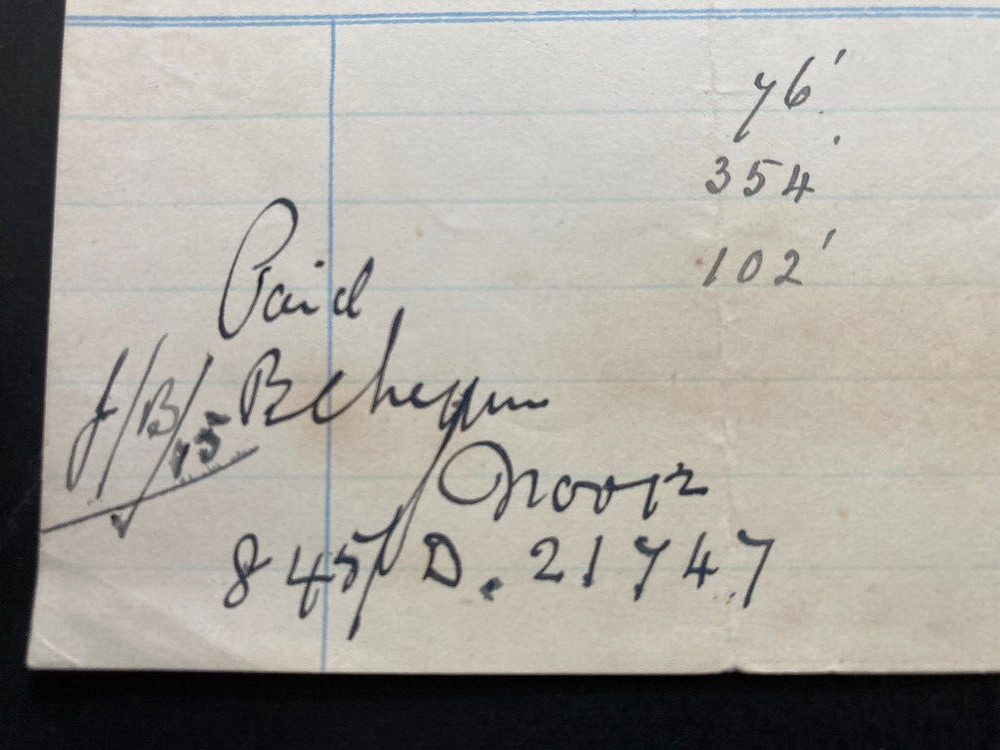 76'
354'
102'
Paid
J/B/15 B Cheque
No 0012
845/ D. 21747